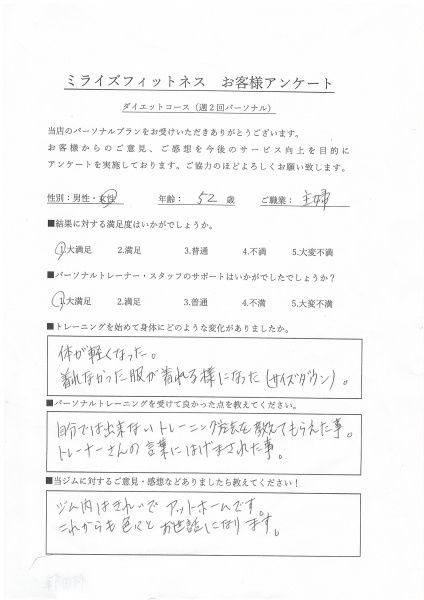 ミライズフィットネス　お客様アンケート
ダイエットコース（週２回パーソナル）
当店のパーソナルプランをお受けいただきありがとうございます。
お客様からのご意見、ご感想を今後のサービス向上を目的に
アンケートを実施しております。ご協力のほどよろしくお願い致します。
性別：男性・女性　年齢：52歳　ご職業：主婦
■結果に対する満足度はいかがでしょうか。
1.大満足　2.満足　3.普通　4.不満　5.大変不満
■パーソナルトレーナー・スタッフのサポートはいかがでしたでしょうか？
1.大満足　2.満足　3.普通　4.不満　5.大変不満
■トレーニングを始めて身体にどのような変化がありましたか。
体が軽くなった。
着れなかった服が着れる様になった（サイズダウン）。
■パーソナルトレーニングを受けて良かった点を教えてください。
自分では出来ないトレーニング方法を教えてもらえた事。
トレーナーさんの言葉にはげまされた事。
■当ジムに対するご意見・感想などありましたら教えてください！
ジム内はきれいでアットホームです。
これからも色々とお世話になります。